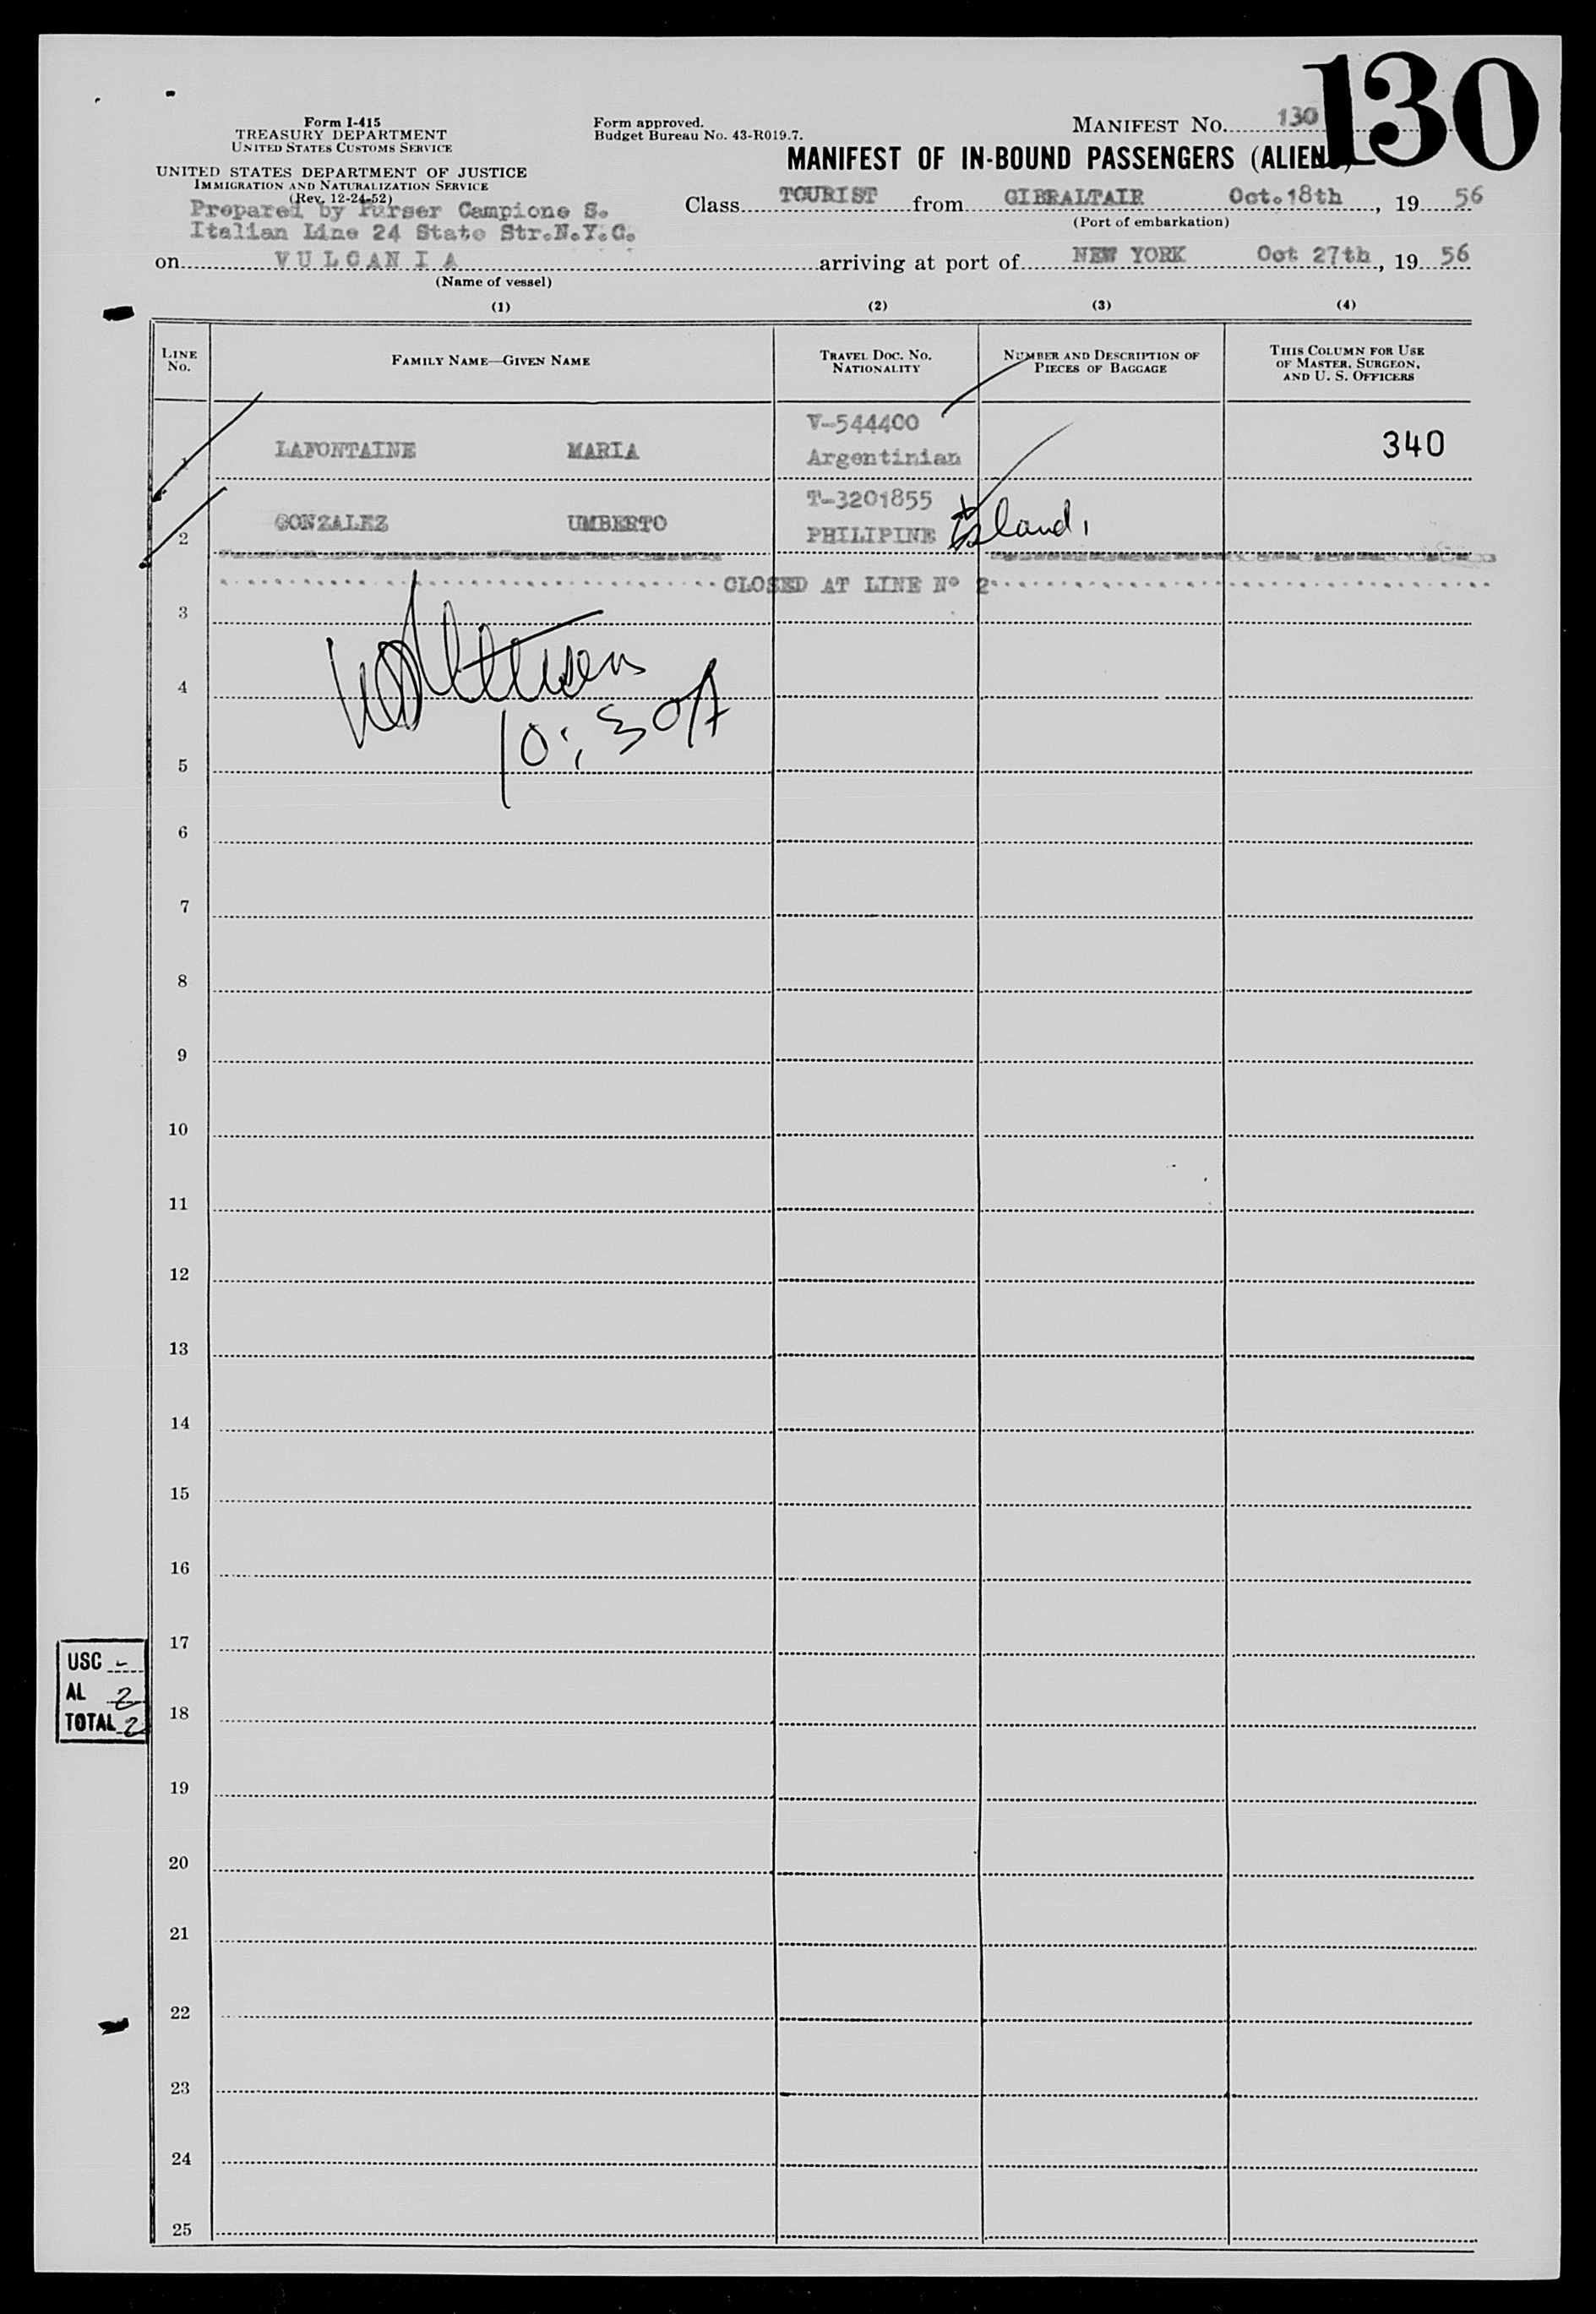 130
Form I-415
TREASURY DEPARTMENT
UNITED STATES CUSTOMS SERVICE
Form approved.
Budget Bureau No. 43-R019.7.
MANIFEST NO. 130
MANIFEST OF IN-BOUND PASSENGERS (ALIENS)
UNITED STATES DEPARTMENT OF JUSTICE
IMMIGRATION AND NATURALIZATION SERVICE
(Rev. 12-24-52)
Prepared by Purser Campione S.
Italian Line 24 State Str.N.Y.C.
Class TOURIST from GIBRALTAIR Oct.18th, 19 56
(Port of embarkation)
on VULCANIA arriving at port of NEW YORK Oct 27th, 19 56
(Name of vessel)
(1) (2) (3) (4)
LINE NO.
FAMILY NAME—GIVEN NAME
TRAVEL DOC. NO.
NATIONALITY
NUMBER AND DESCRIPTION OF
PIECES OF BAGGAGE
THIS COLUMN FOR USE
OF MASTER, SURGEON,
AND U. S. OFFICERS
V-544400
1 LAFONTAINE MARIA Argentinian 340
T-3201855
2 GONZALEZ UMBERTO PHILIPINE Island,
CLOSED AT LINE Nº 2
3
4
10:30A
5
6
7
8
9
10
11
12
13
14
15
16
17
USC -
AL 2
TOTAL 2
18
19
20
21
22
23
24
25